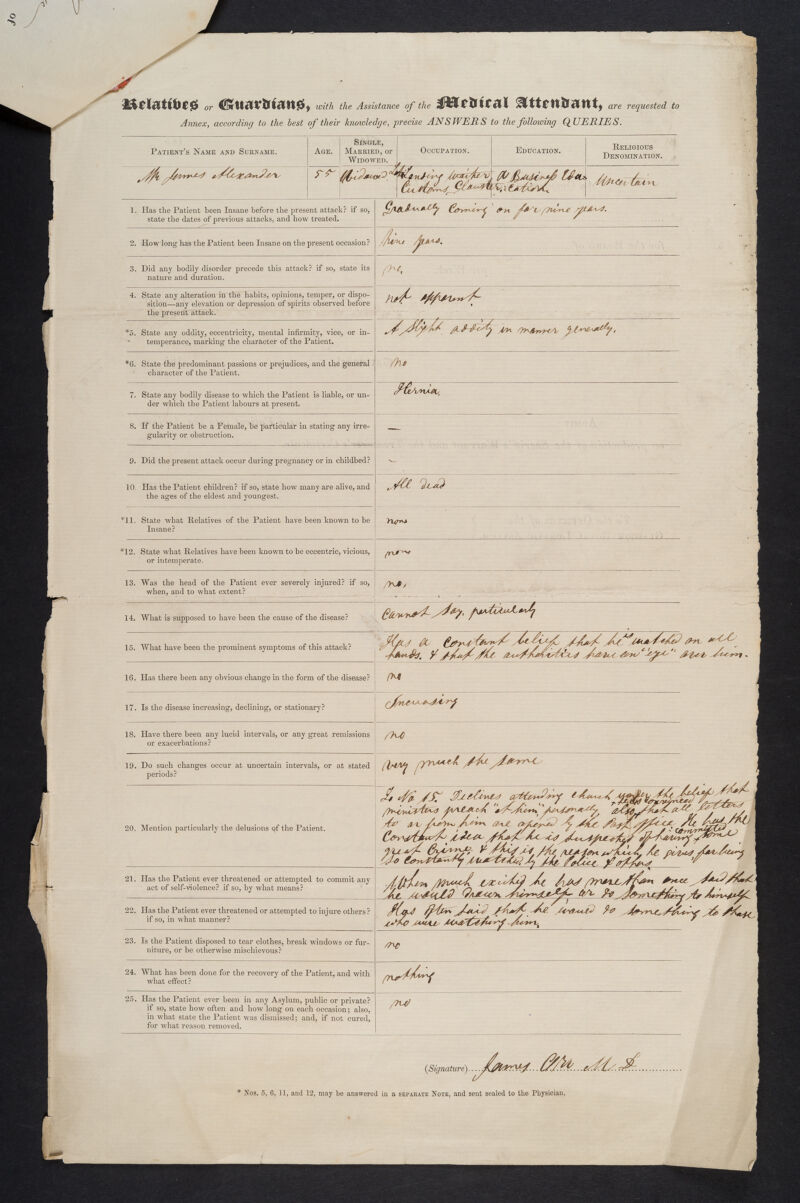 Relatives or Guardians, with the Assistance of the Medical Attendant, are requested to
Annex, according to the best of their knowledge, precise ANSWERS to the following QUERIES.
Patient's Name and Surname. Age. Single, Married, or Widowed. Occupation. Education. Religious Denomination.
Mr James Alexander 55 Widower Landing waiter Customs, A Business Education Uncertain
1. Has the Patient been Insane before the present attack? if so, state the dates of previous attacks, and how treated.
Gradually coming on for nine years.
2. How long has the Patient been Insane on the present occasion?
Nine years.
3. Did any bodily disorder precede this attack? if so, state its nature and duration.
no,
4. State any alteration in the habits, opinions, temper, or disposition—any elevation or depression of spirits observed before the present attack.
not apparent
*5. State any oddity, eccentricity, mental infirmity, vice, or intemperance, marking the character of the Patient.
A slight oddity in manner generally.
*6. State the predominant passions or prejudices, and the general character of the Patient.
no
7. State any bodily disease to which the Patient is liable, or under which the Patient labours at present.
Hernia,
8. If the Patient be a Female, be particular in stating any irregularity or obstruction.
—
9. Did the present attack occur during pregnancy or in childbed?
~
10. Has the Patient children? if so, state how many are alive, and the ages of the eldest and youngest.
All dead
*11. State what Relatives of the Patient have been known to be Insane?
none
*12. State what Relatives have been known to be eccentric, vicious, or intemperate.
none
13. Was the head of the Patient ever severely injured? if so, when, and to what extent?
no,
14. What is supposed to have been the cause of the disease?
Cannot say, particularly
15. What have been the prominent symptoms of this attack?
Has a constant belief that he is watched on all
hands. & that the authorities have an "eye" over him.
16. Has there been any obvious change in the form of the disease?
no
17. Is the disease increasing, declining, or stationary?
Increasing
18. Have there been any lucid intervals, or any great remissions or exacerbations?
no
19. Do such changes occur at uncertain intervals, or at stated periods?
Very much the same
20. Mention particularly the delusions of the Patient.
To No 15. Declines attending church under the belief that
ministers preach "at him" personally, & feels convinced also, that all letters
to or from him are opened by the Post Office. He has the
Constant idea that he is suspected of having committed some
great Crime, & this is the reason which he gives for being
so constantly watched by the Police & others
21. Has the Patient ever threatened or attempted to commit any act of self-violence? if so, by what means?
When much excited he has more than once said that
he would drown himself or do something to himself
22. Has the Patient ever threatened or attempted to injure others? if so, in what manner?
Has often said that he would do something to those
who were watching him,
23. Is the Patient disposed to tear clothes, break windows or furniture, or be otherwise mischievous?
no
24. What has been done for the recovery of the Patient, and with what effect?
nothing
25. Has the Patient ever been in any Asylum, public or private? if so, state how often and how long on each occasion; also, in what state the Patient was dismissed; and, if not cured, for what reason removed.
no
(Signature) James Orr M D
* Nos. 5, 6, 11, and 12, may be answered in a separate Note, and sent sealed to the Physician.